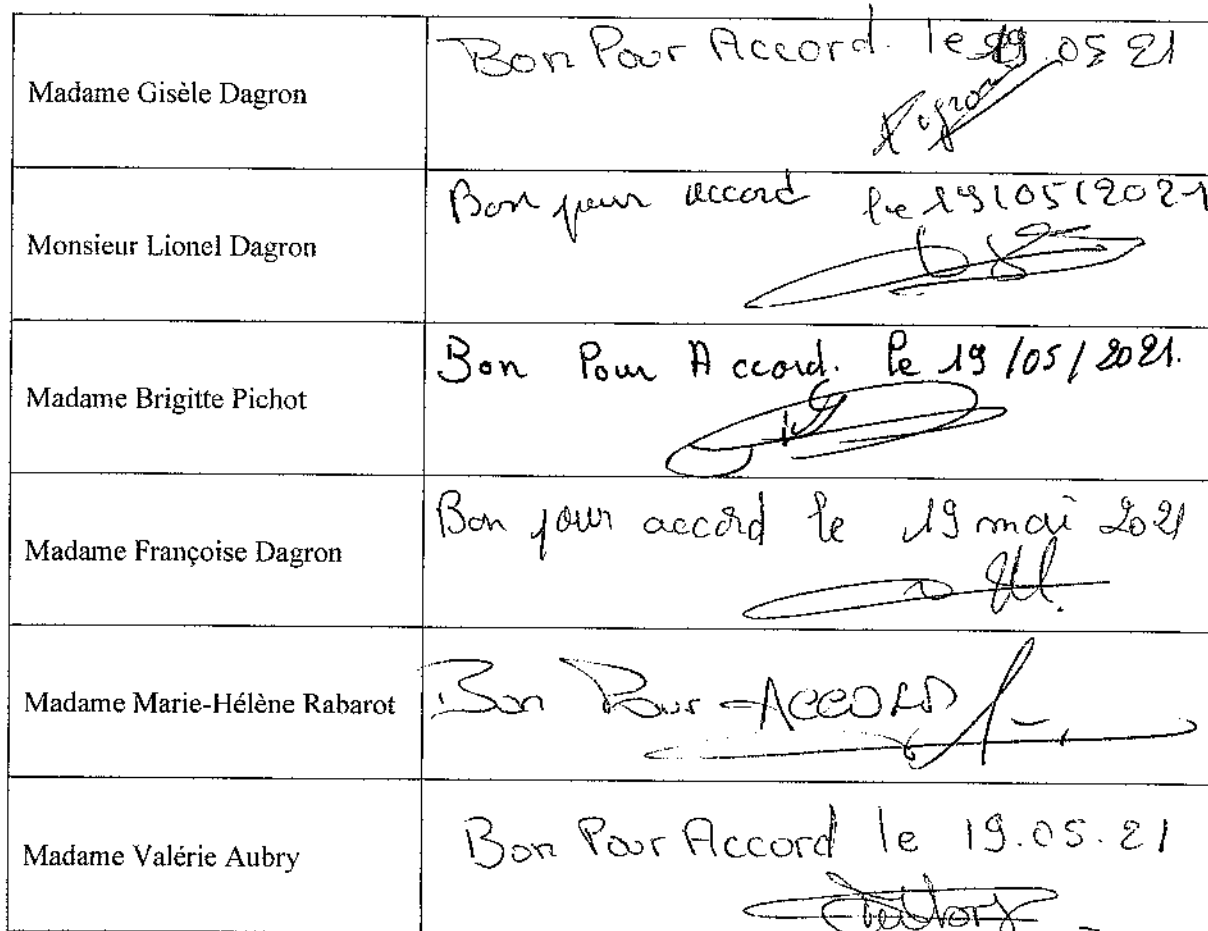 Madame Gisèle Dagron
Bon Pour Accord. le 19.05 21
Monsieur Lionel Dagron
Bon pour accord le 19/05/2021
Madame Brigitte Pichot
Bon Pour Accord. le 19/05/2021.
Madame Françoise Dagron
Bon pour accord le 19 mai 2021
Madame Marie-Hélène Rabarot
Bon Pour ACCORD
Madame Valérie Aubry
Bon Pour Accord le 19.05.21